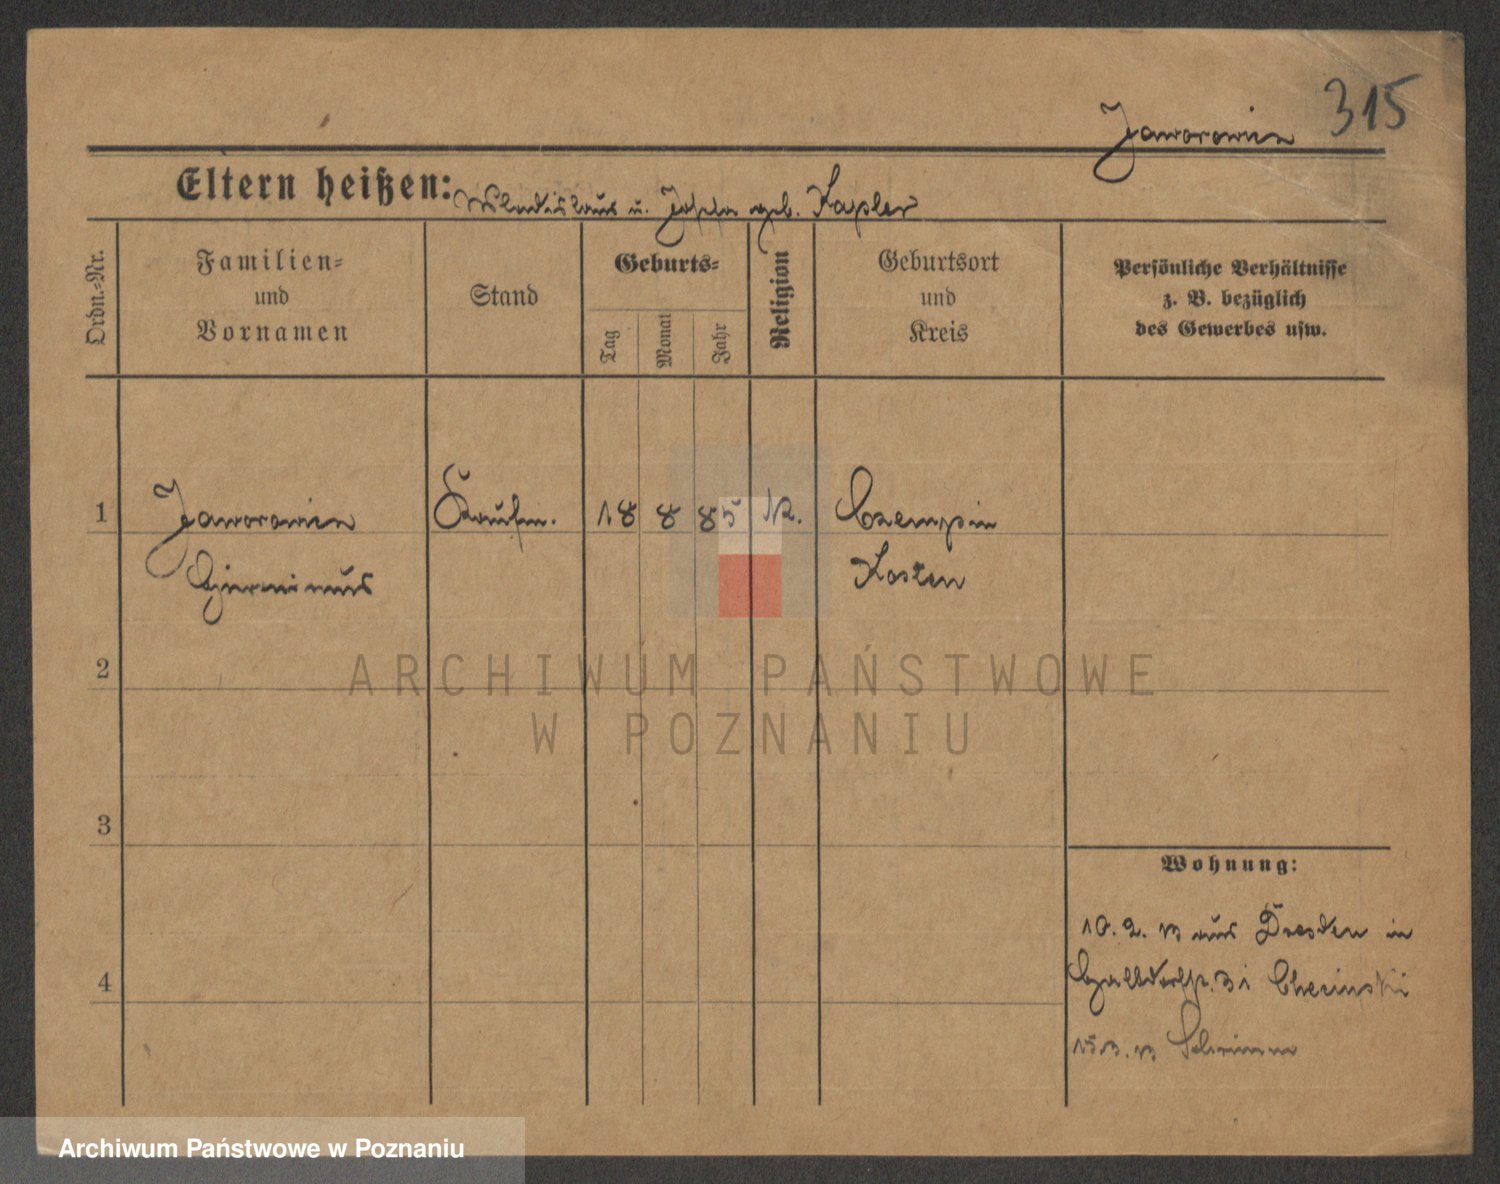 315
Jaworowicz
Eltern heißen: Wladislaus u. Josefa geb. Kapler
Ordn.-Nr.
Familien-
und
Vornamen
Stand
Geburts-
Tag
Monat
Jahr
Religion
Geburtsort
und
Kreis
Persönliche Verhältnisse
z. B. bezüglich
des Gewerbes usw.
1 Jaworowicz Kaufm. 18 8 85 K. Czempin
Kosten
2
3
4
Wohnung:
10. 2. 13 aus Dresden in
31
13 Schrimm
ARCHIWUM PAŃSTWOWE
W POZNANIU
Archiwum Państwowe w Poznaniu